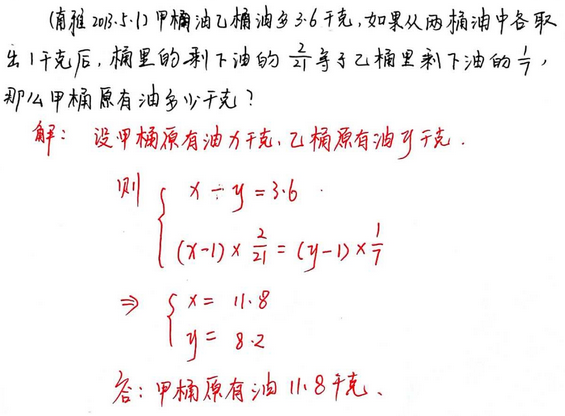 (南雅 2013.5.1) 甲桶油乙桶油多3.6千克,如果从两桶油中各取
出1千克后,桶里的剩下油的 2/21 等于乙桶里剩下油的 1/7,
那么甲桶原有油多少千克?
解: 设甲桶原有油x千克、乙桶原有油y千克.
则 { x ÷ y = 3.6
(x-1) × 2/21 = (y-1) × 1/7
⇒ { x = 11.8
y = 8.2
答: 甲桶原有油 11.8千克、